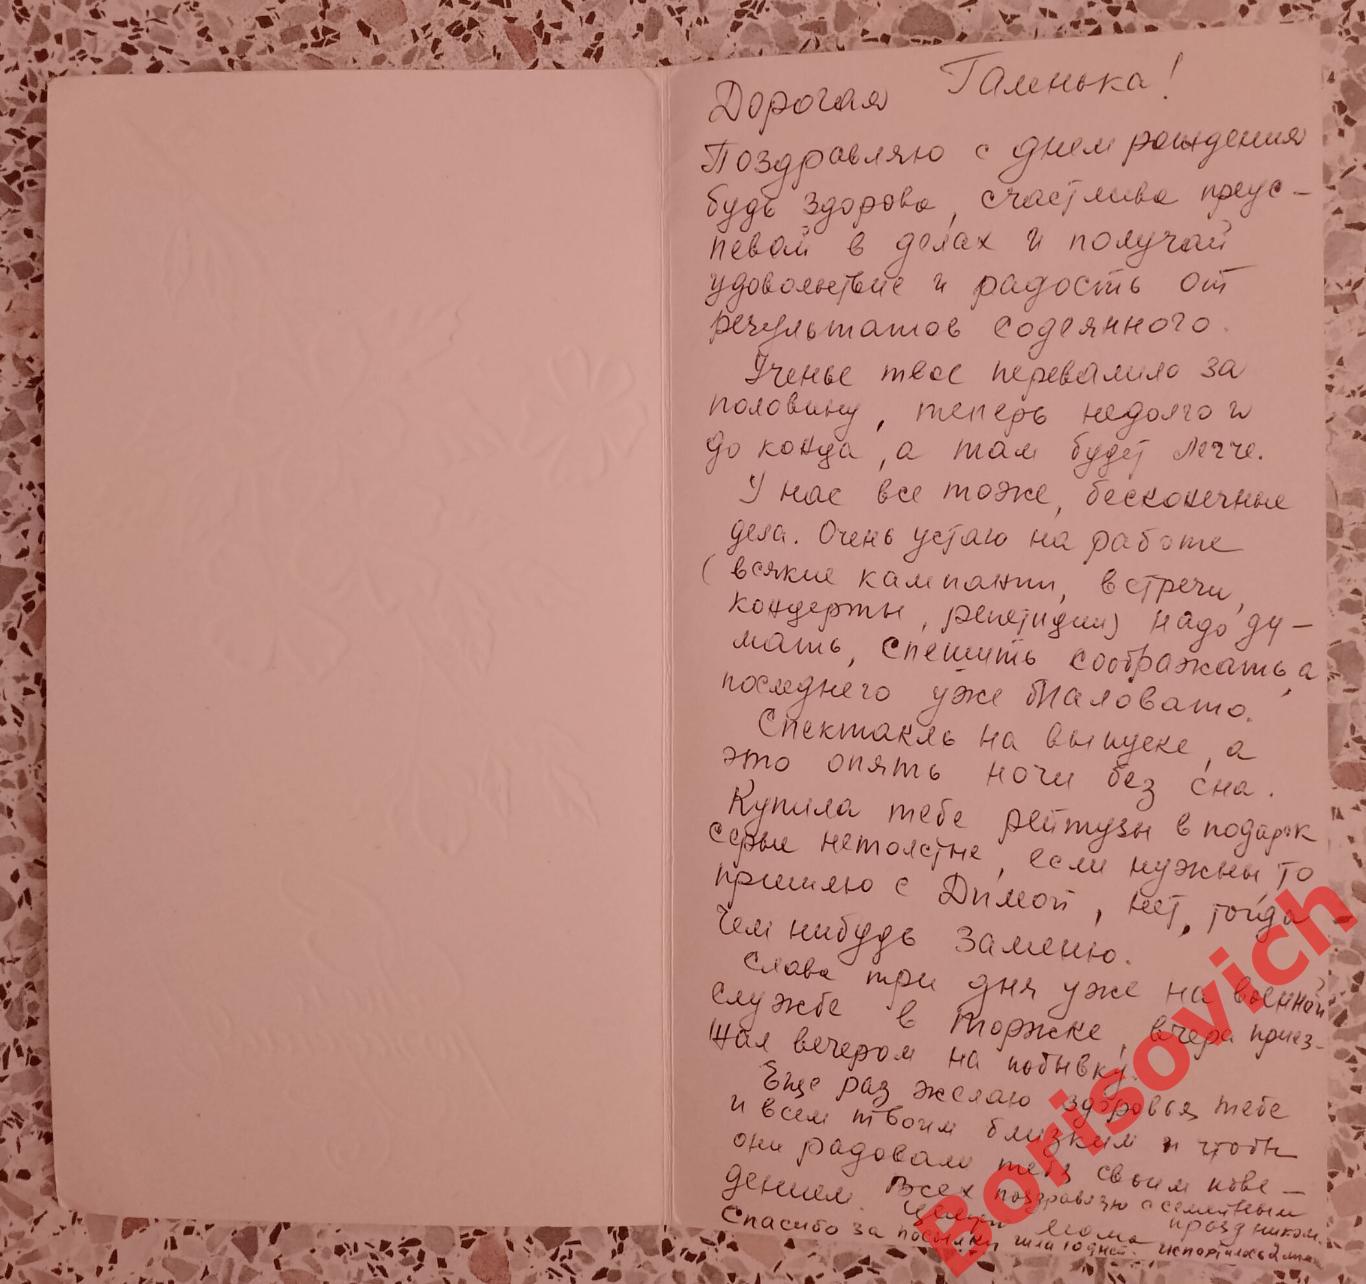 Дорогая Галенька!
Поздравляю с днем рождения
будь здорова, счастлива преус-
певай в делах и получай
удовольствие и радость от
результатов содеянного.
Ученье твое перевалило за
половину, теперь недолго и
до конца, а там будет легче.
У нас все тоже, бесконечные
дела. Очень устаю на работе
(всякие кампании, встречи,
концерты, репетиции) надо ду-
мать, спешить соображать, а
последнего уже маловато.
Спектакль на выпуске, а
это опять ночи без сна.
Купила тебе рейтузы в подарок
серые нетолстые, если нужны, то
пришлю с Димой, нет, тогда
чем нибудь заменю.
Слава три дня уже на военной
службе в Торжке, вчера приез-
жал вечером на побывку.
Еще раз желаю здоровья тебе
и всем твоим близким и чтобы
они радовали тебя своим пове-
дением. Всех поздравляю с семейным
праздником.
Целую мама
Спасибо за посылки
С днем
Рождения
Borisovich